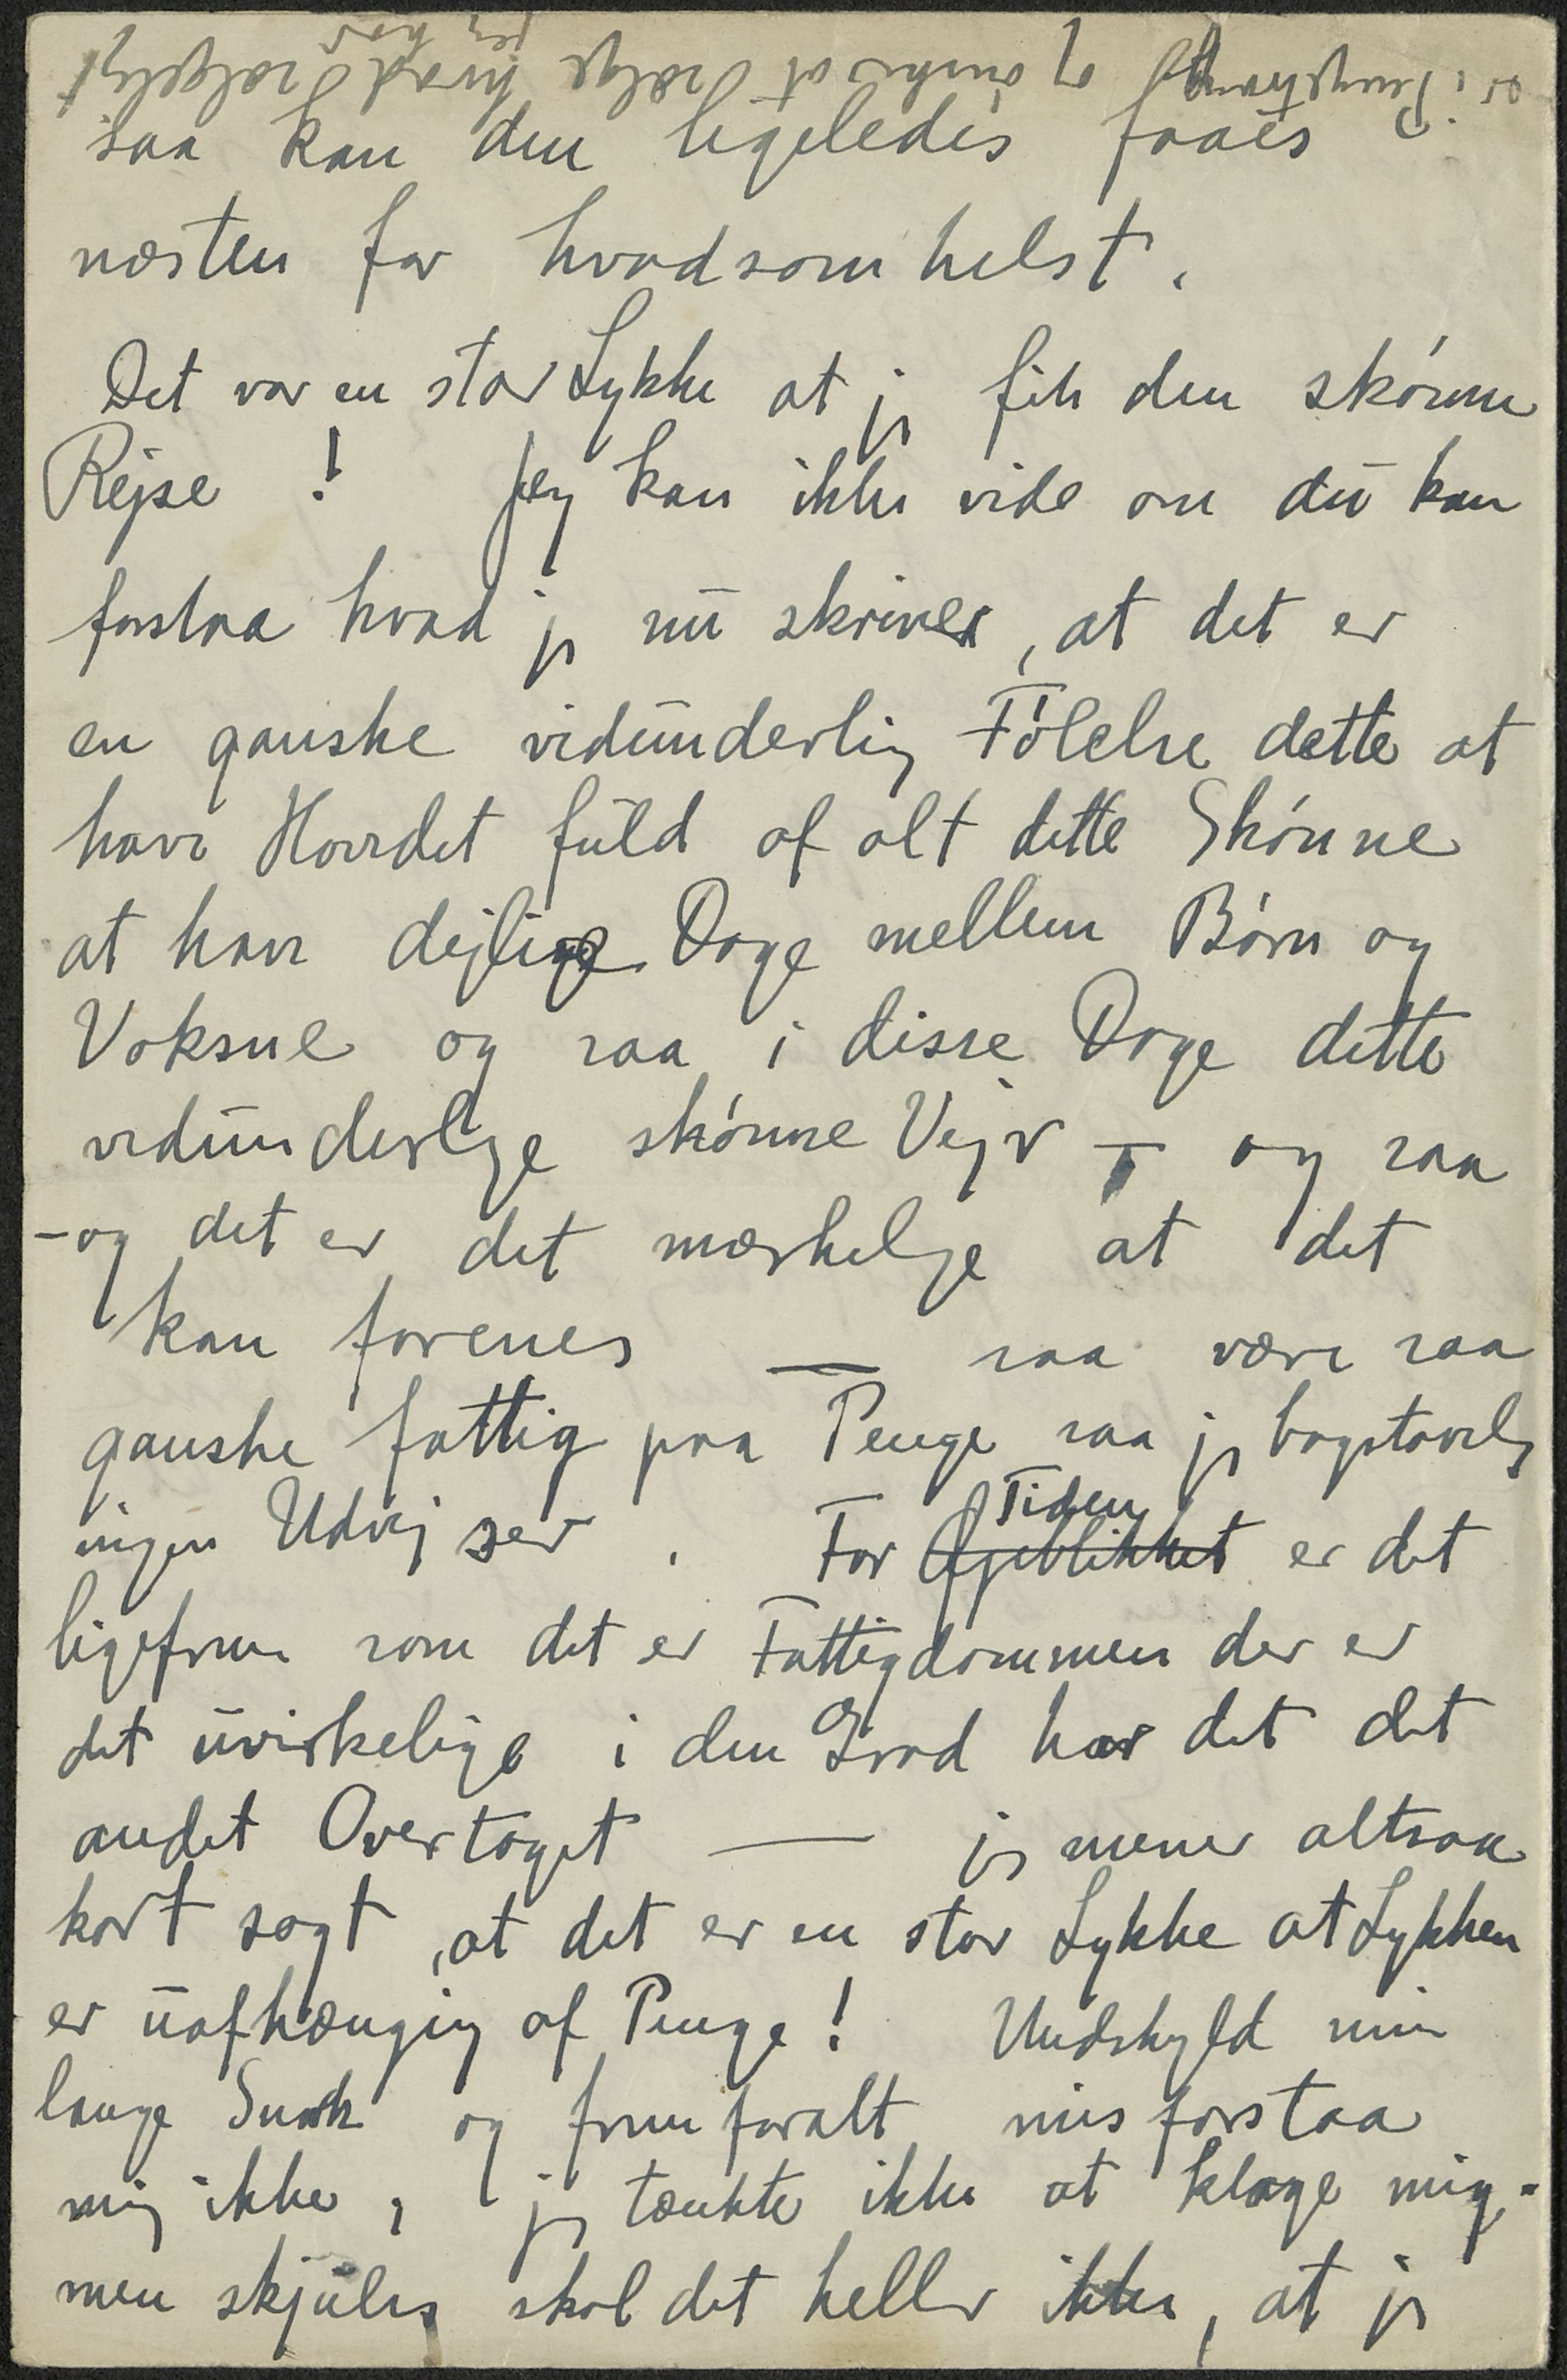 saa kan den ligeledes faaes
næsten for hvadsomhelst.
Det var en stor Lykke at jeg fik den skønne
Rejse ! Jeg kan ikke vide om du kan
forstaa hvad jeg nu skriver, at det er
en ganske vidunderlig Følelse dette at
have Hovedet fuld af alt dette Skønne
at have dejlige Dage mellem Børn og
Voksne og saa i disse Dage dette
vidunderlige skønne Vejr – og saa
– og det er det mærkelige at det
kan forenes — saa være saa
ganske fattig paa Penge saa jeg bogstavelig
ingen Udvej ser . For Øjeblikket Tiden er det
ligefrem som det er Fattigdommen der er
det uvirkelige i den Grad har det det
andet Overtaget — jeg mener altsaa
kort sagt, at det er en stor Lykke at Lykken
er uafhængig af Penge! Undskyld min
lange Snak og fremforalt misforstaa
mig ikke, jeg tænkte ikke at klage mig.
men skjules skal det heller ikke, at jeg
er i Pengetrang og ønsker at sælge hvad jeg har sælgeligt